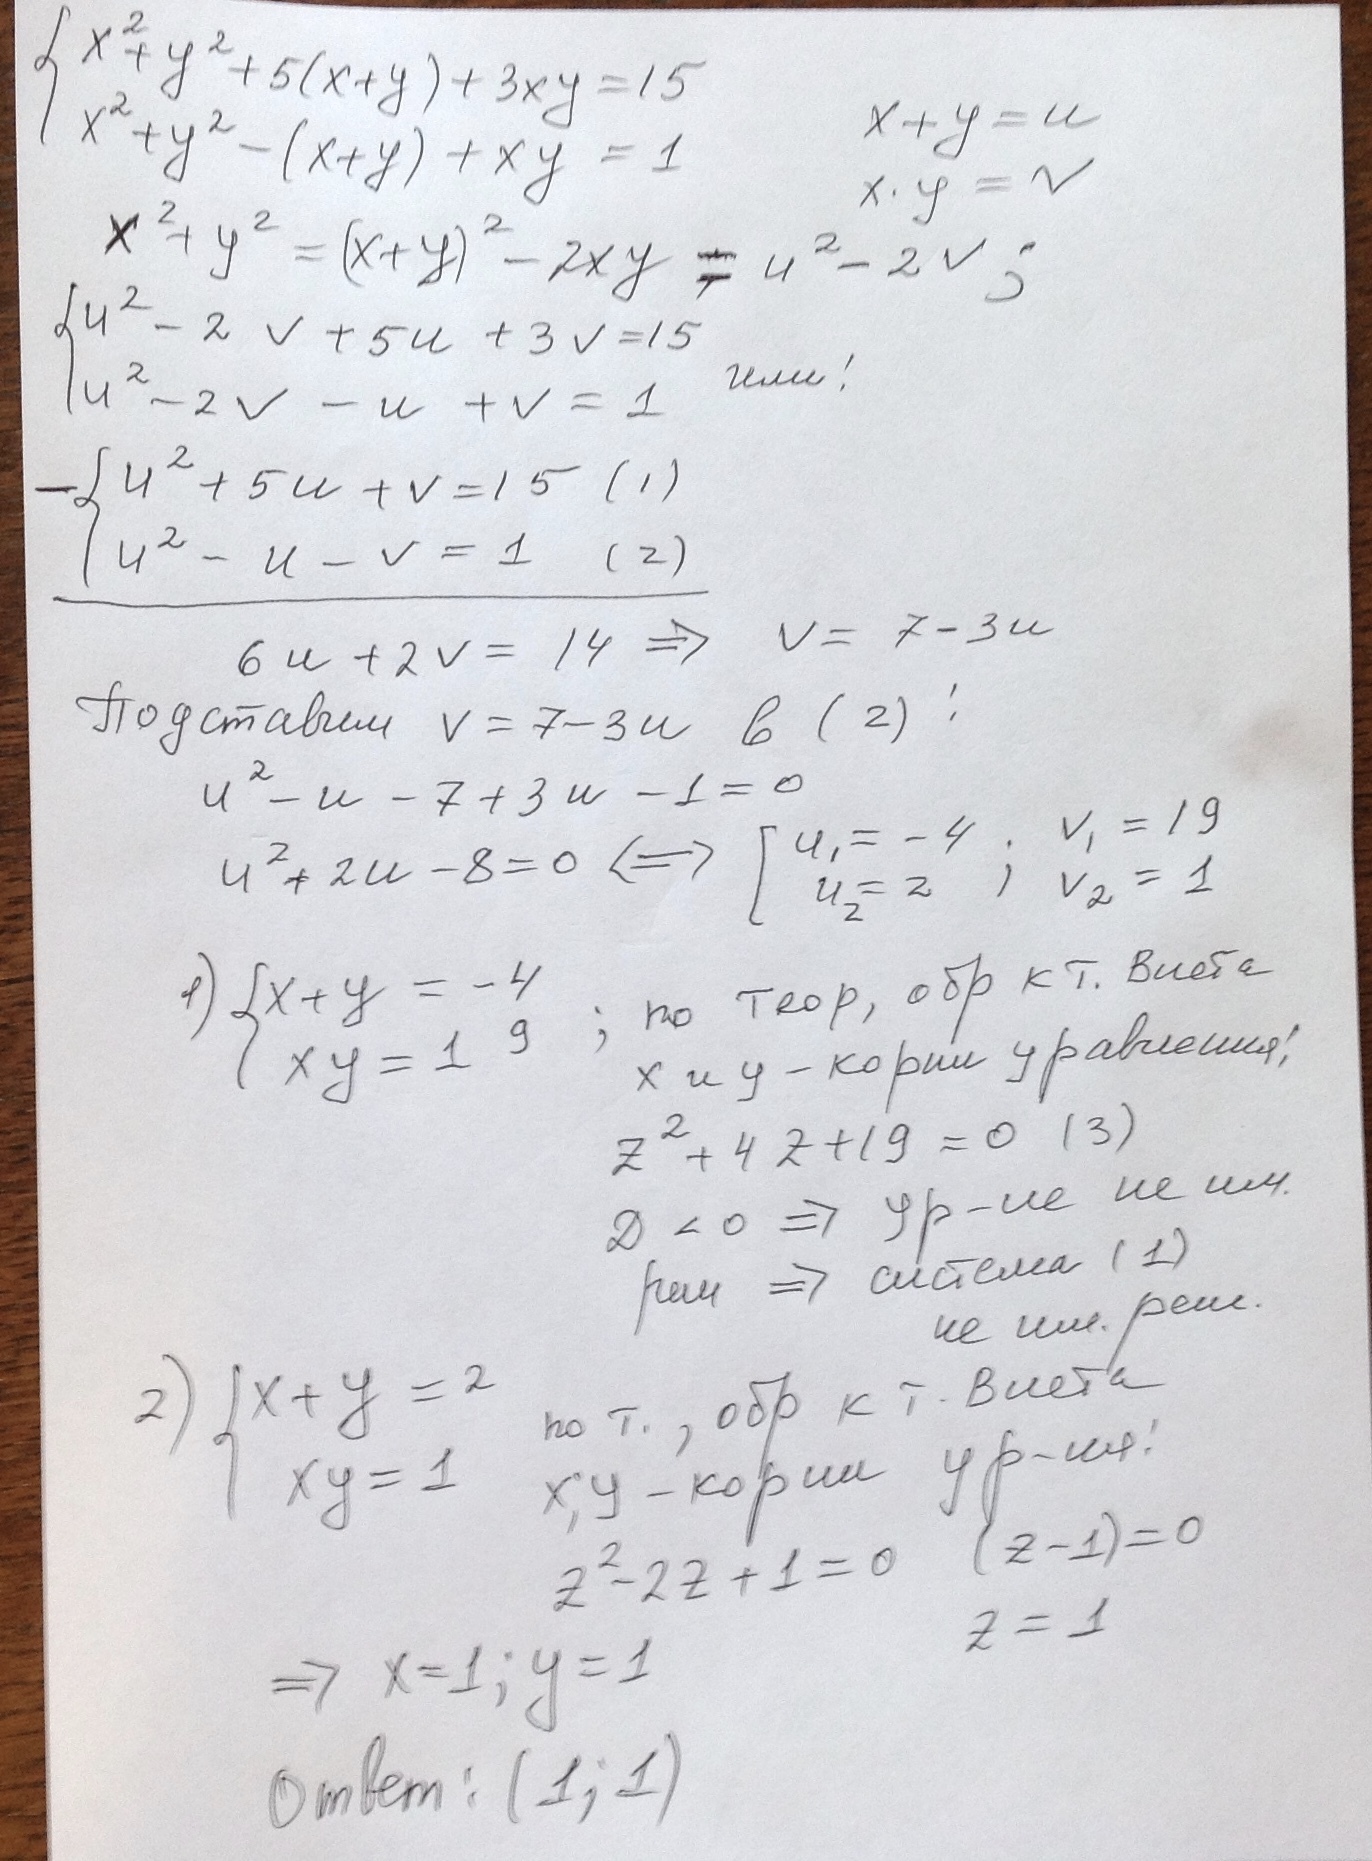 x²+y²+5(x+y)+3xy=15
x²+y²-(x+y)+xy=1
x+y=u
x·y=v
x²+y²=(x+y)²-2xy=u²-2v;
u²-2v+5u+3v=15
u²-2v-u+v=1 или:
-{u²+5u+v=15 (1)
u²-u-v=1 (2)
6u+2v=14 ⇒ v=7-3u
Подставим v=7-3u в (2):
u²-u-7+3u-1=0
u²+2u-8=0 ⇔ [u₁=-4; v₁=19
u₂=2; v₂=1
1) {x+y=-4
xy=19
; по теор, обр к т. Виета
x и y-корни уравнения:
z²+4z+19=0 (3)
D<0 ⇒ ур-ие не им.
реш ⇒ система (1)
не им. реш.
2) {x+y=2
xy=1
по т., обр к т. Виета
x,y-корни ур-ия:
z²-2z+1=0 (z-1)=0
z=1
⇒ x=1; y=1
Ответ: (1; 1)